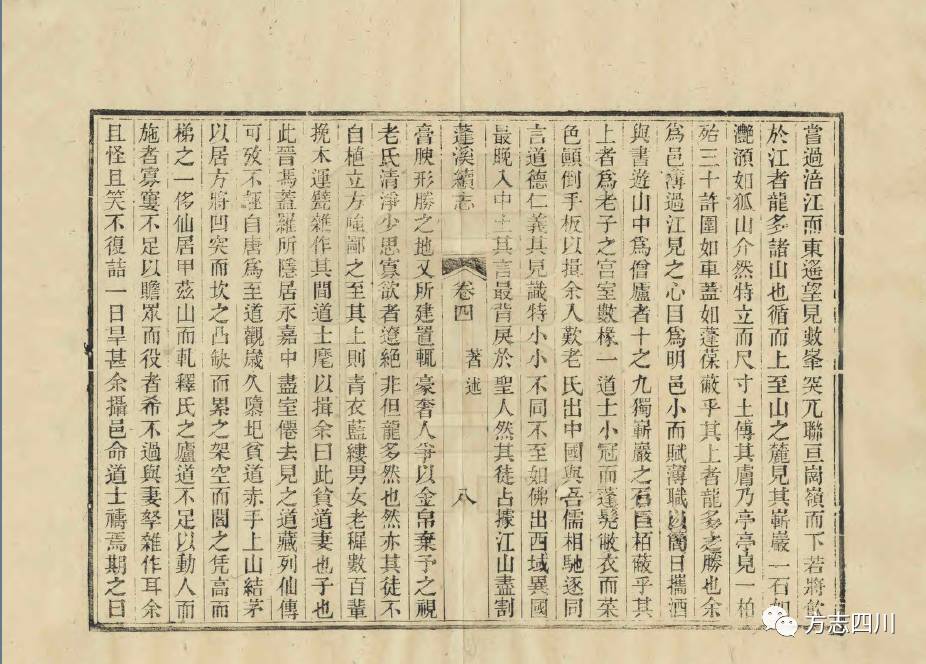 嘗過涪江而東遙望見數峯突兀聯亘崗嶺而下若將飲
於江者龍多諸山也循而上至山之麓見其嶄巖一石如
灧澦如狐山介然特立而尺寸土傅其膚乃亭亭見一柏
殆三十許圍如車蓋如蓬葆蔽乎其上者龍多之勝也余
為邑薄過江見之心目為明邑小而賦薄職以簡日攜酒
與書遊山中為僧廬者十之九獨嶄巖之石巨栢蔽乎其
上者為老子之宮室數椽一道士小冠而蓬髮敝衣而菜
色顛倒手板以揖余入歎老氏出中國與吾儒相馳逐同
言道德仁義其見識特小小不同不至如佛出西域異國
最晚入中土其言最背戾於聖人然其徒占據江山盡割
蓬溪續志 卷四 著述 八
膏腴形勝之地又所建置輒豪奢人爭以金帛棄予之視
老氏清淨少思寡欲者遼絕非但龍多然也然亦其徒不
自植立方嗤鄙之至其上則青衣藍縷男女老穉數百輩
挽木運甓雜作其間道士麾以揖余曰此貧道妻也子也
此晉馮蓋羅所隱居永嘉中盡室僊去見之道藏列仙傳
可攷不誣自唐為至道觀歲久隳圯貧道赤手上山結茅
以居方將凹突而坎之凸缺而累之架空而閣之凭高而
梯之一侈仙居甲茲山而軋釋氏之廬道不足以動人而
施者寡寠不足以贍眾而役者希不過與妻孥雜作耳余
且怪且笑不復詰一日旱甚余攝邑命道士禱焉期之曰
方志四川